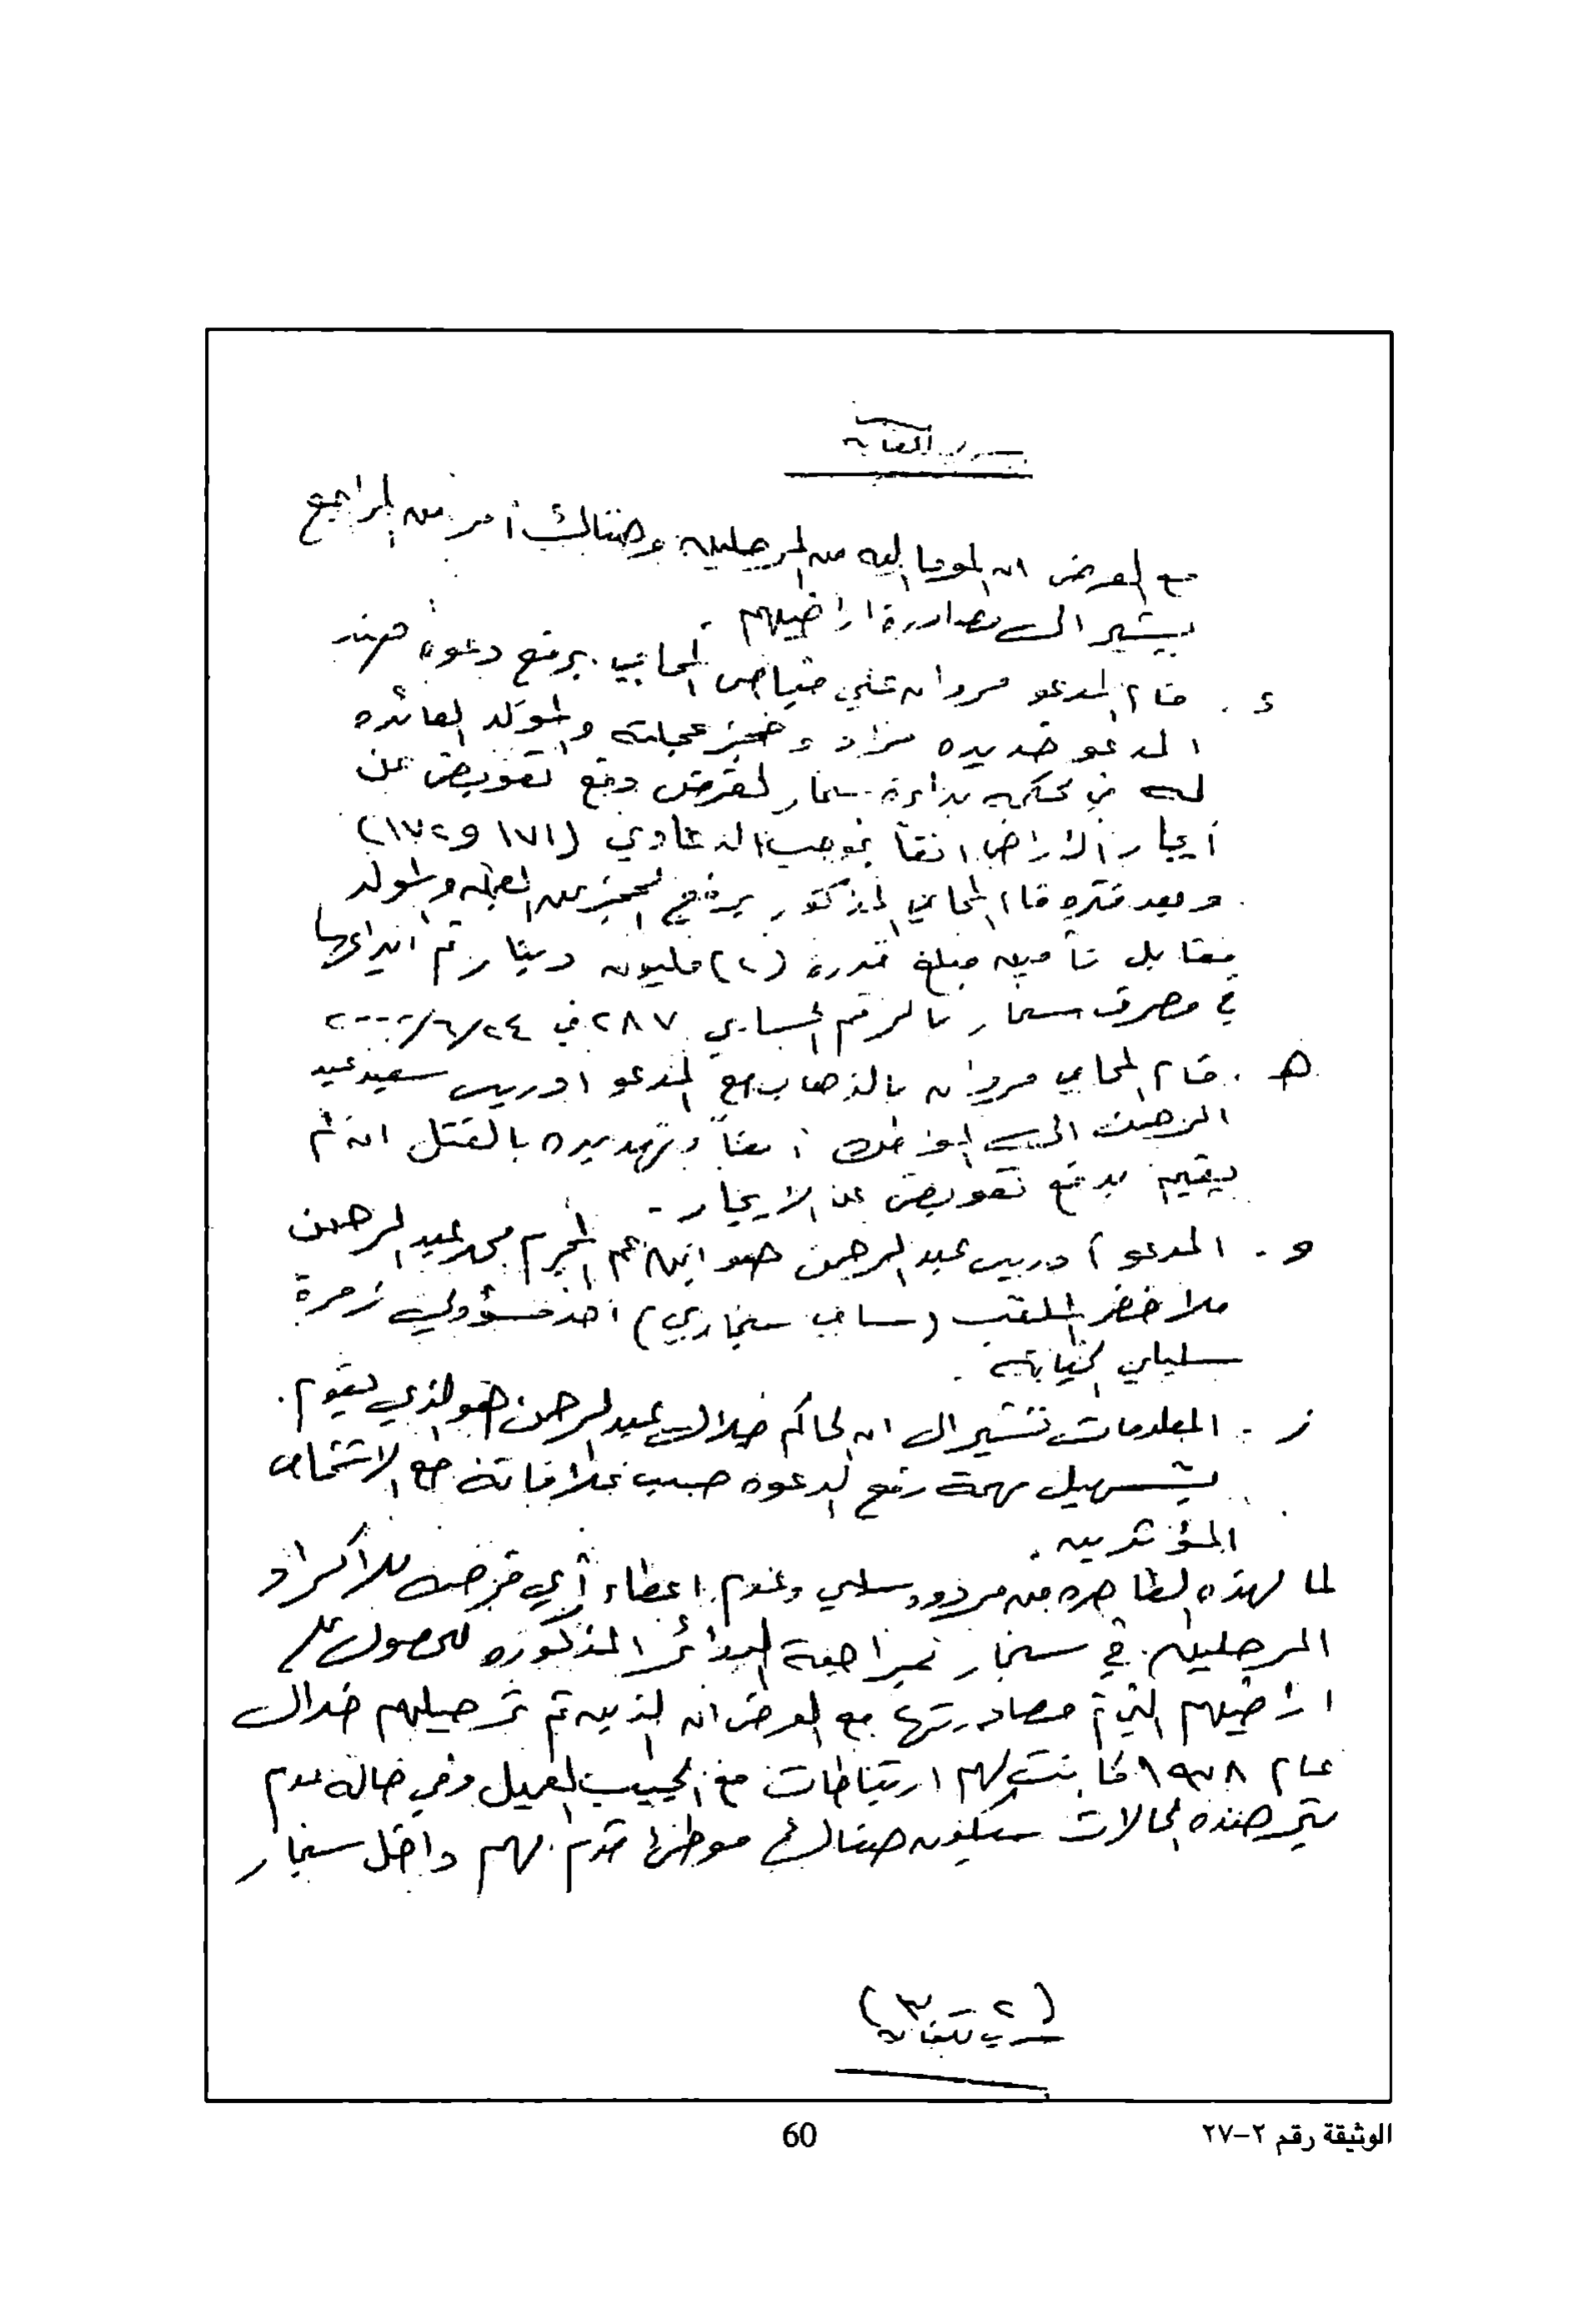 سري للغاية
مع العرض ان الموما اليه من المرحلين وهنالك أمر من المراجع
يشير الى مصادرة اراضيهم .
د . قام المدعو مروان علي المحامي برفع دعوه ضد
المدعو مراد و حجز عجلته والمولد العائده
له في محكمه بداءة سنجار لغرض دفع تعويض عن
أيجار الاراضي انفاً بموجب الدعاوي (١٧١ و ١٧٢)
وبعد فتره قام المحامي المذكور برفع الحجز عن العجله والمولد
مقابل تأمين مبلغ قدره (٢) مليون دينار تم ايداعها
في مصرف سنجار بالرقم الحسابي ٢٨٧ في ٢٠٠٠/٦/٢٤
هـ . قام المحامي مروان بالذهاب مع المدعو ادريس سعيد عبد
الرحمن الى انفاً وتهديده بالقتل ان لم
يقيم بدفع تعويض عن الايجار .
و . المدعو ادريس عبد الرحمن هو ابن عم المجرم محمد عبد الرحمن
ملا خضر الملقب (سامي سنجاري) احد مسؤولي زمرة
سليلي الخيانه .
ز . المعلومات تشير الى ان الحاكم عبد الرحمن هو الذي يقوم
بتسهيل مهمة رفع الدعوه حسب علاقاته مع الاشخاص
المؤشرين .
لما لهذه الظاهره من مردود سلبي وعدم اعطاء أي فرصه للاكراد
المرحلين في سنجار بمراجعة الدوائر المذكوره للحصول على
اراضيهم التي تم مصادرتها مع العرض ان الذين تم ترحيلهم خلال
عام كانت لهم ارتباطات مع الجيب العميل وفي حالة عدم
هذه الحالات سيكون هنالك موطئ قدم لهم داخل سنجار
(٢ - ٣)
سري للغاية
الوثيقة رقم ٢-٢٧
60